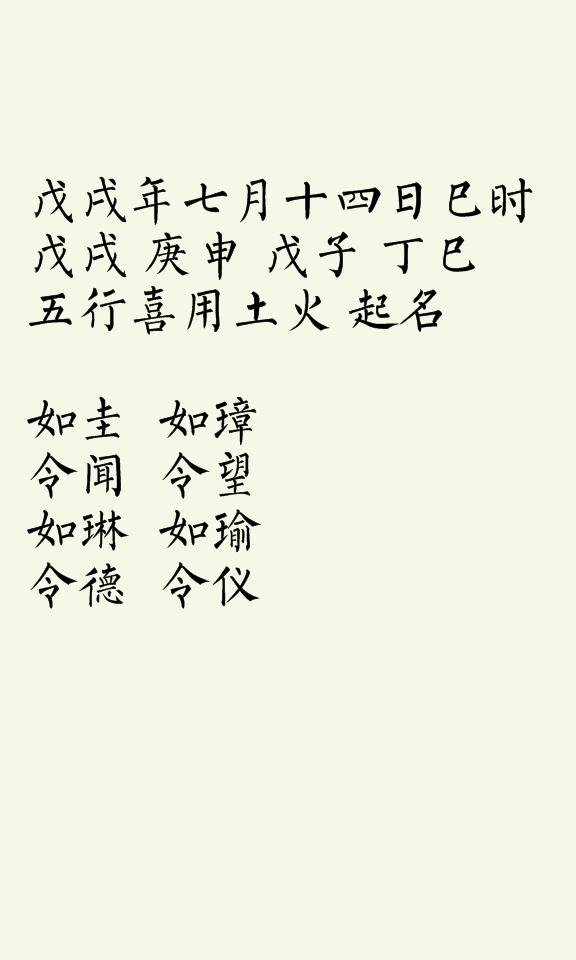 戊戌年七月十四日巳时
戊戌 庚申 戊子 丁巳
五行喜用土火 起名
如圭 如璋
令闻 令望
如琳 如瑜
令德 令仪